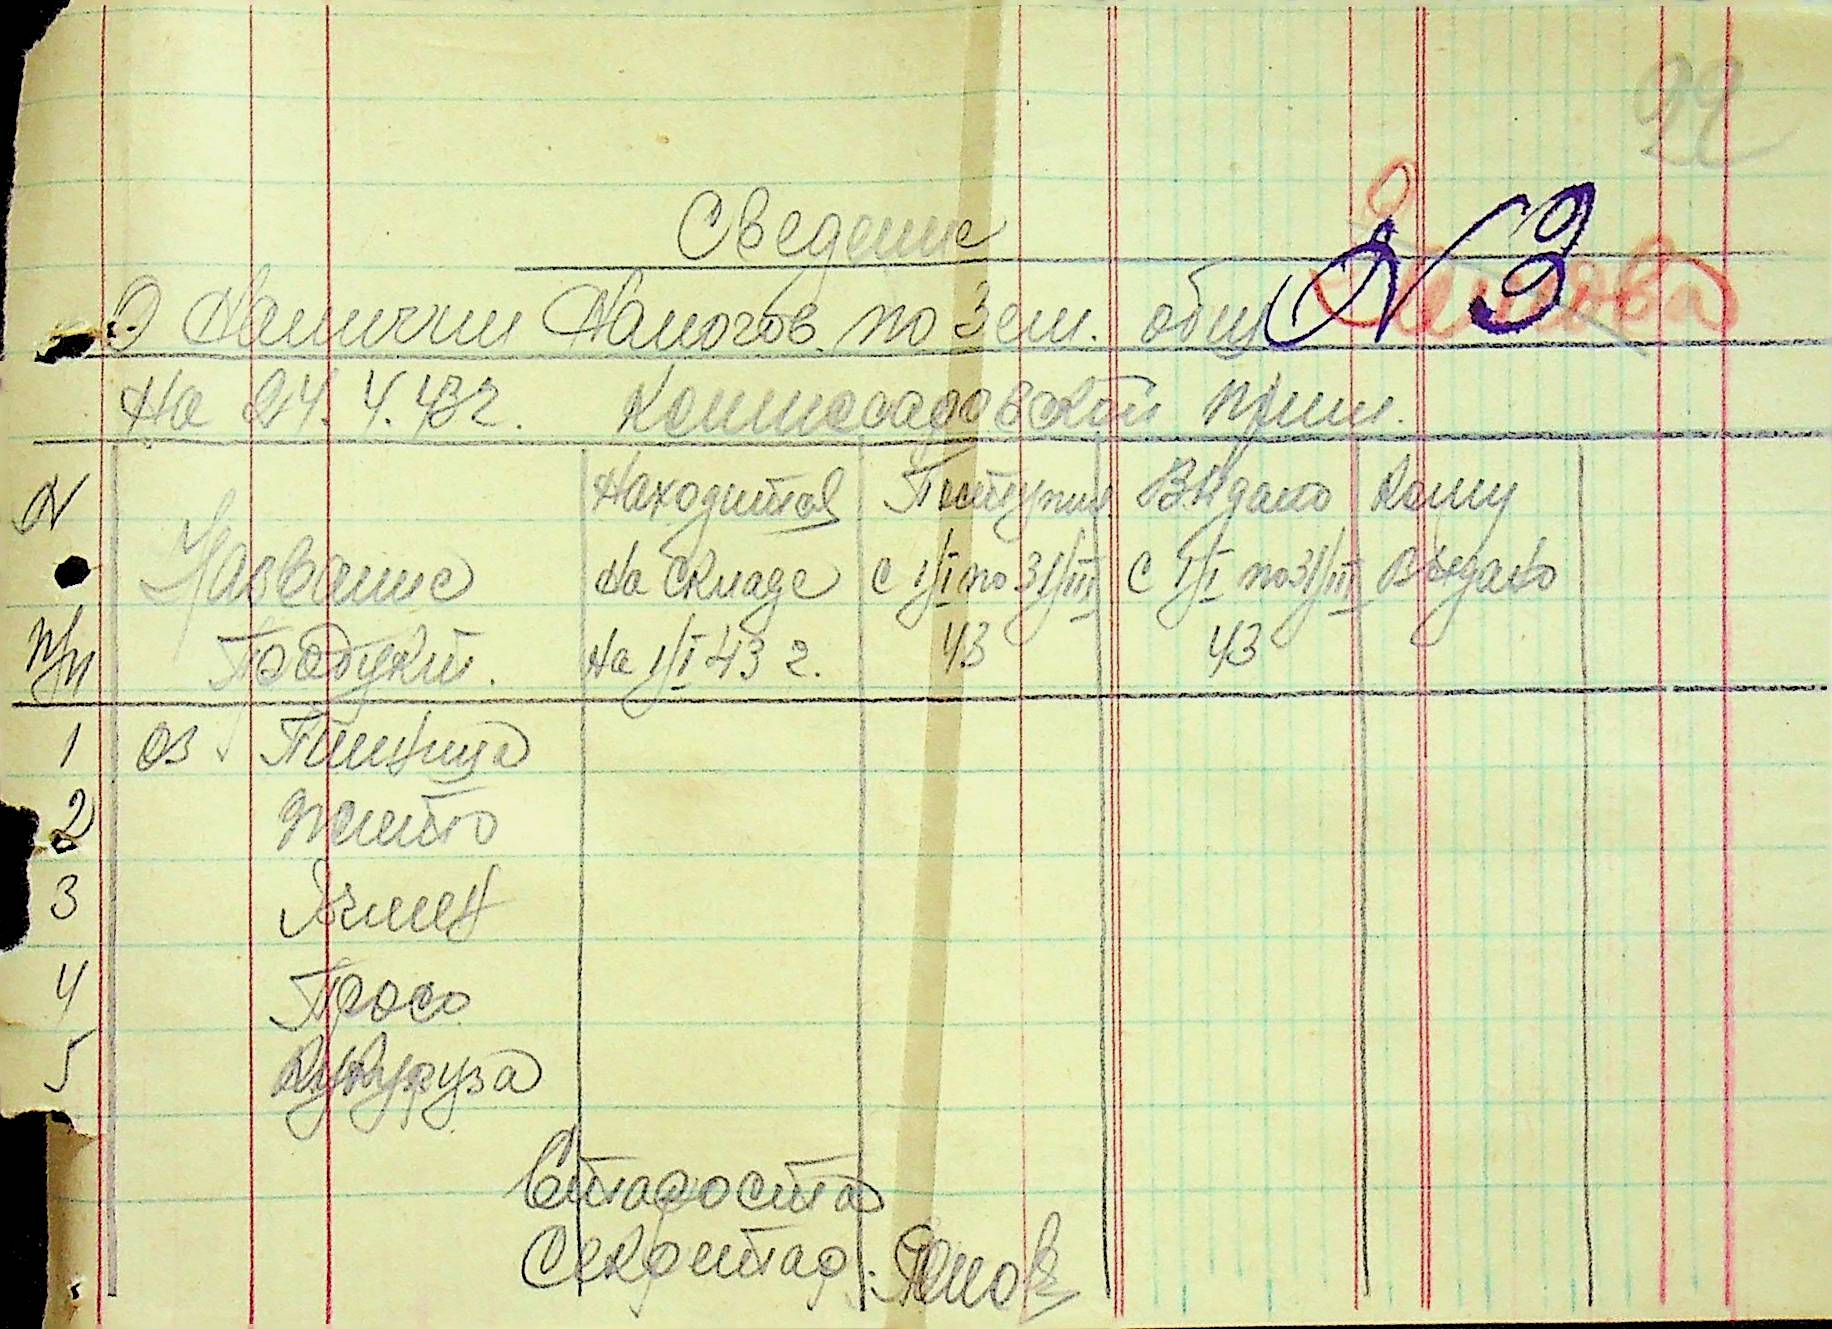 92
Сведение
О Наличии Налогов по Зем. общ № 3
На 24.4.43г. Комиссаровской прим.
N п/п
Название Продукт.
Находится на складе на 1/I 43 г.
Поступил с 1/I по 31/III 43
Выдано с 1/I по 31/III 43
Кому выдано
1 оз Пшеница
2 Жито
3 Ячмен
4 Просо
5 Кукуруза
Староста
Секретар.